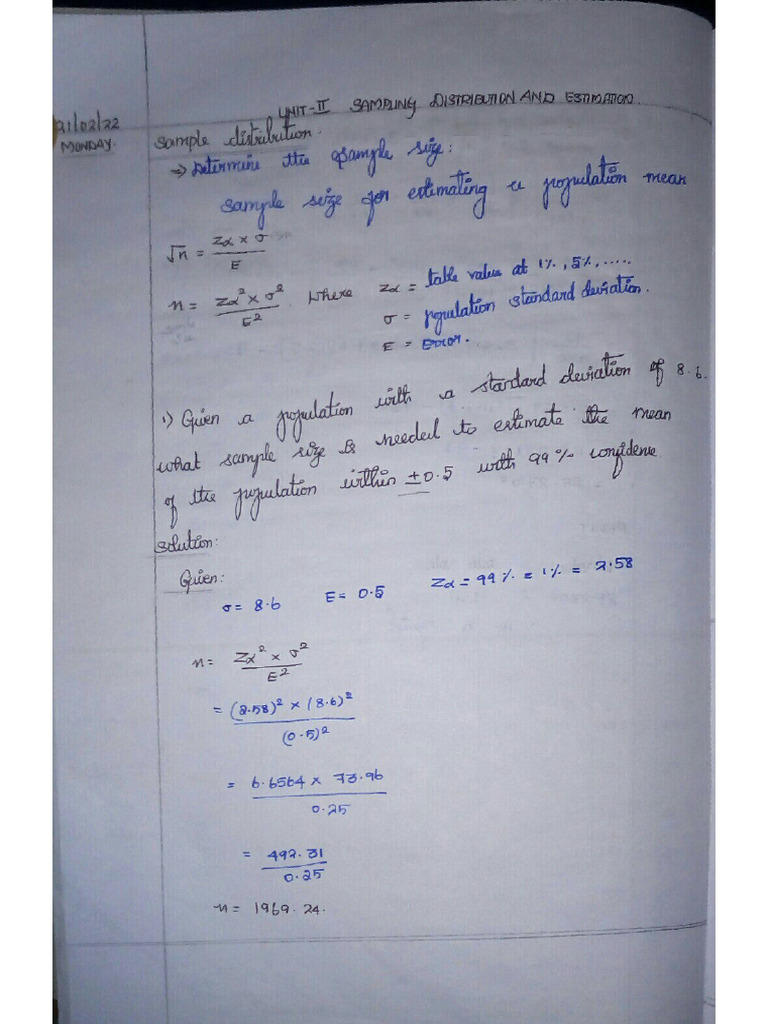 UNIT-II SAMPLING DISTRIBUTION AND ESTIMATION.
21/02/22
MONDAY.
Sample distribution.
→ Determine the sample size:
Sample size for estimating a population mean
√n = Zα × σ / E
n = Zα² × σ² / E² Where Zα = table value at 1%, 5%, .....
σ = population standard deviation.
E = Error.
1) Given a population with a standard deviation of 8.6.
what sample size is needed to estimate the mean
of the population within ±0.5 with 99% confidence
Solution:
Given:
σ = 8.6 E = 0.5 Zα = 99% = 1% = 2.58
n = Zα² × σ² / E²
= (2.58)² × (8.6)² / (0.5)²
= 6.6564 × 73.96 / 0.25
= 492.31 / 0.25
n = 1969.24.